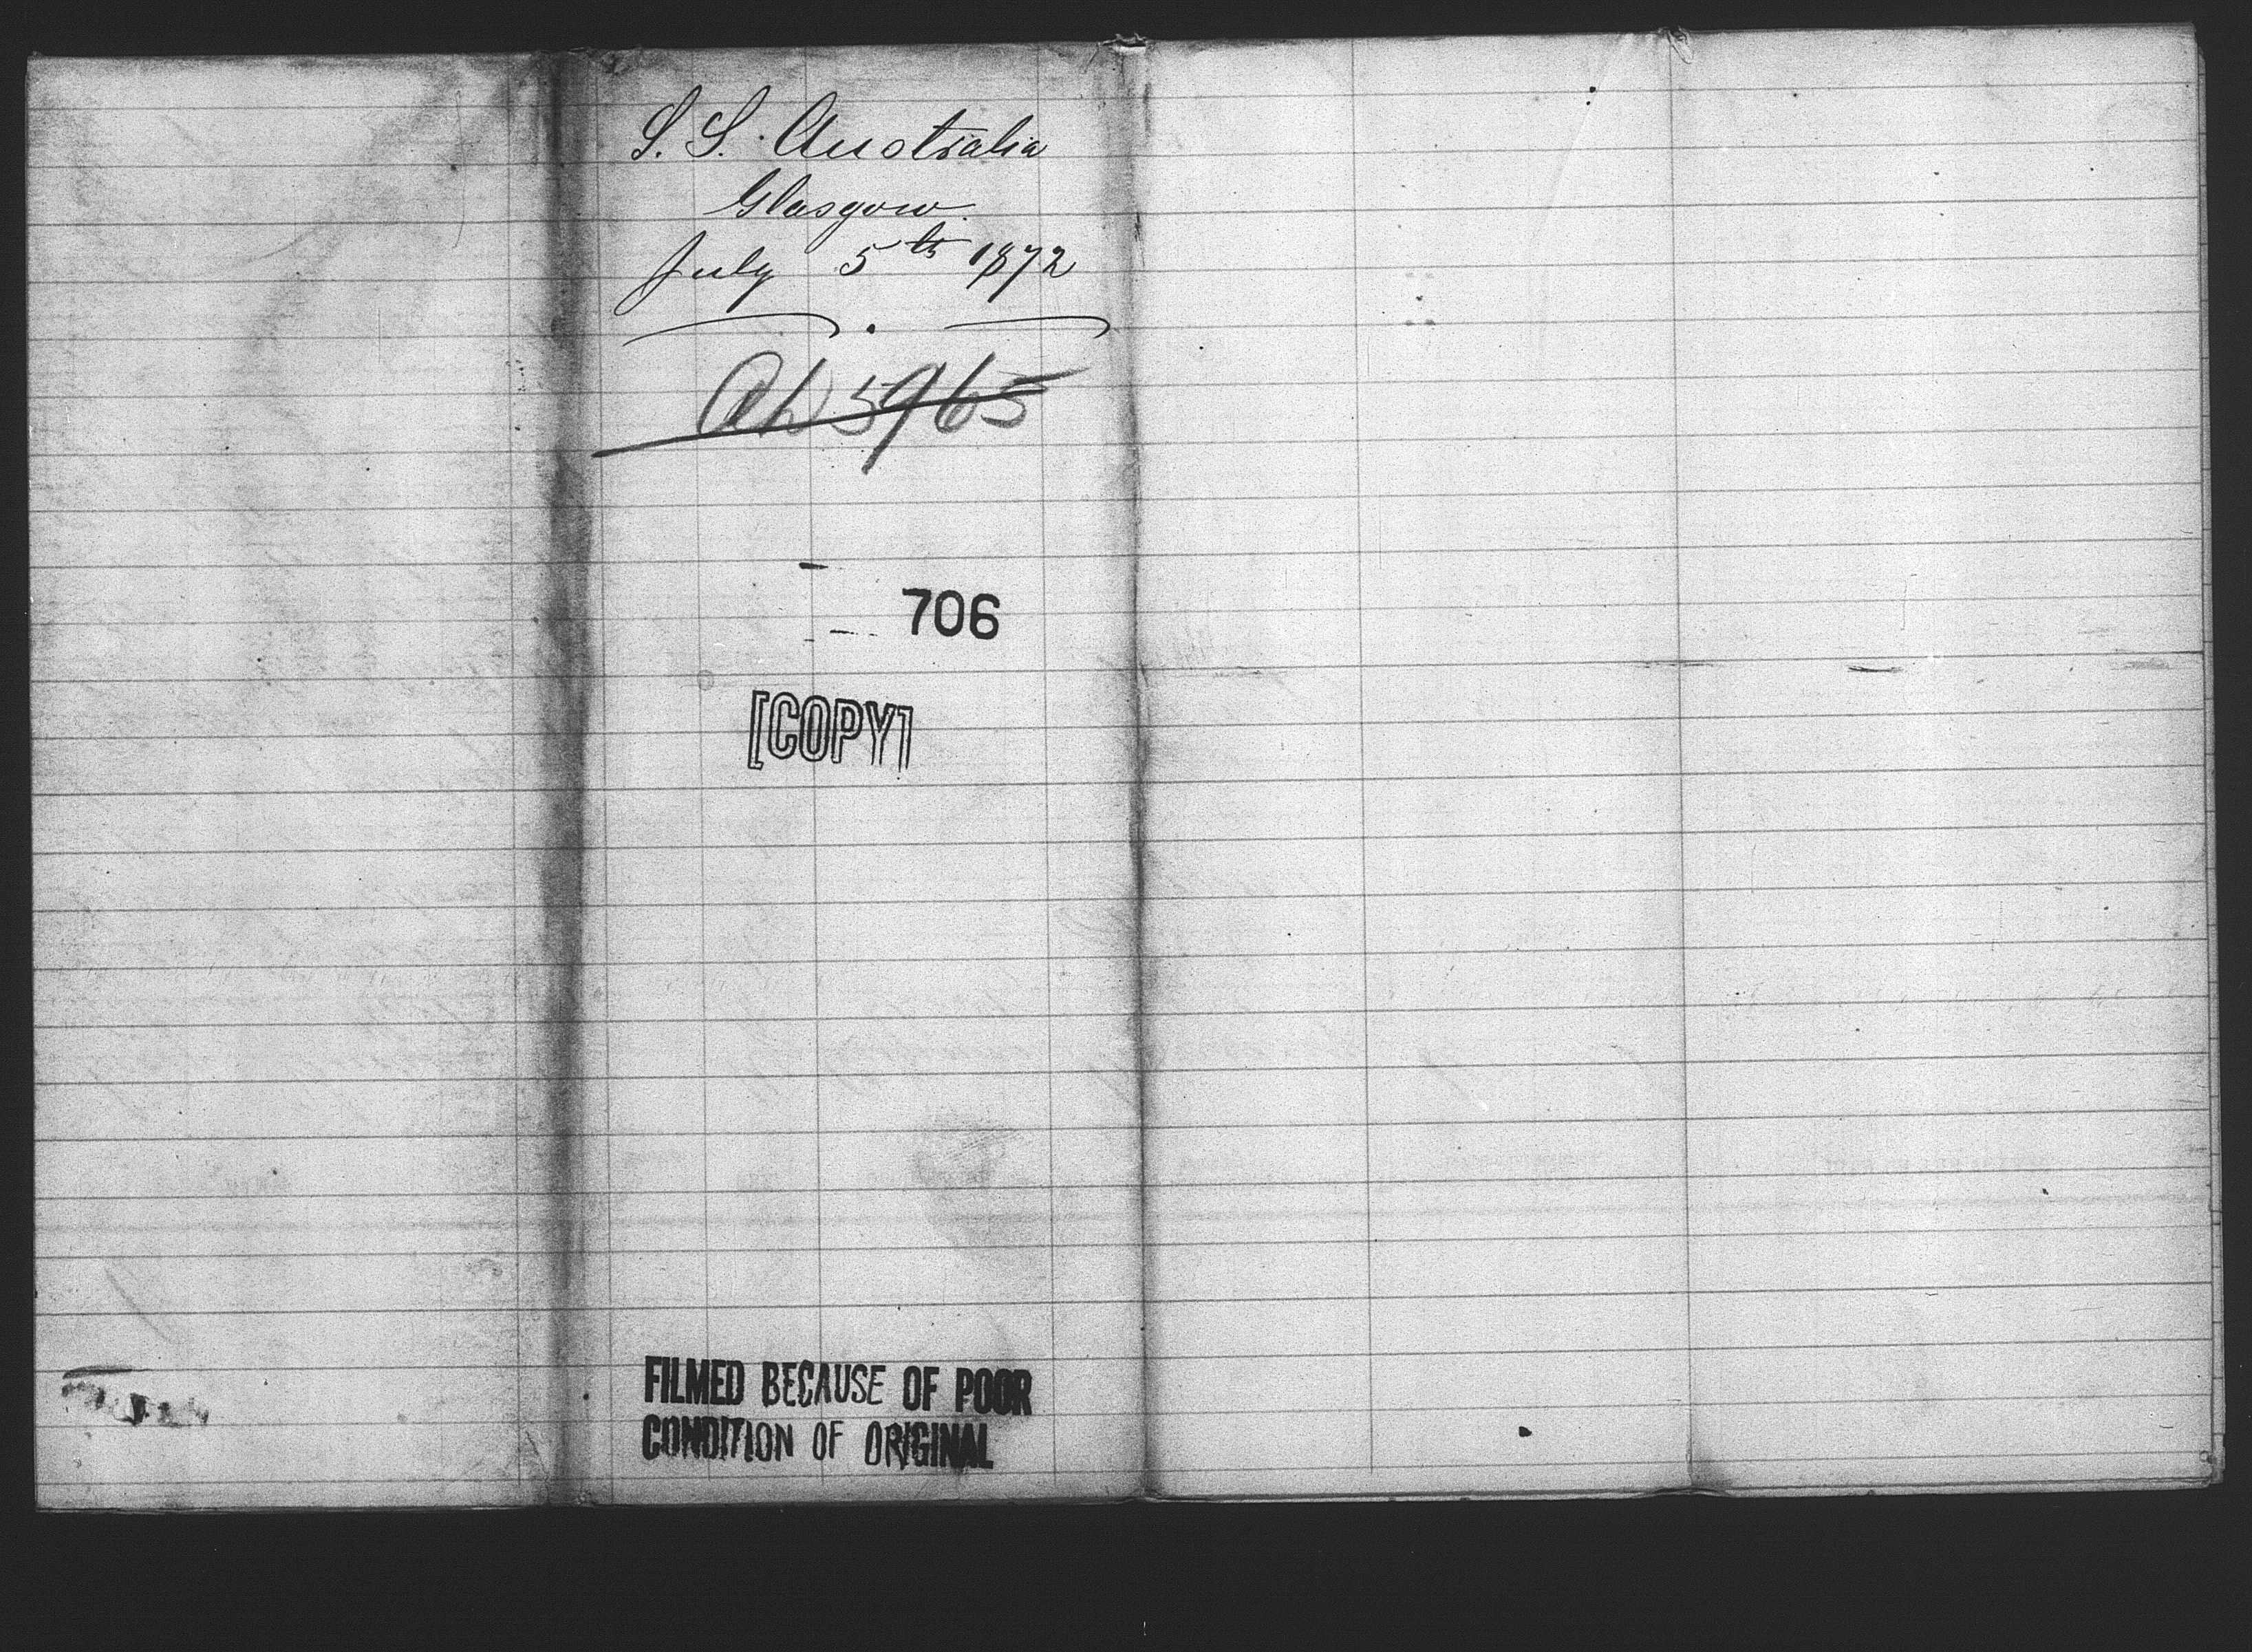 S. S. Australia
Glasgow.
July 5th 1872
5965
706
[COPY]
FILMED BECAUSE OF POOR
CONDITION OF ORIGINAL